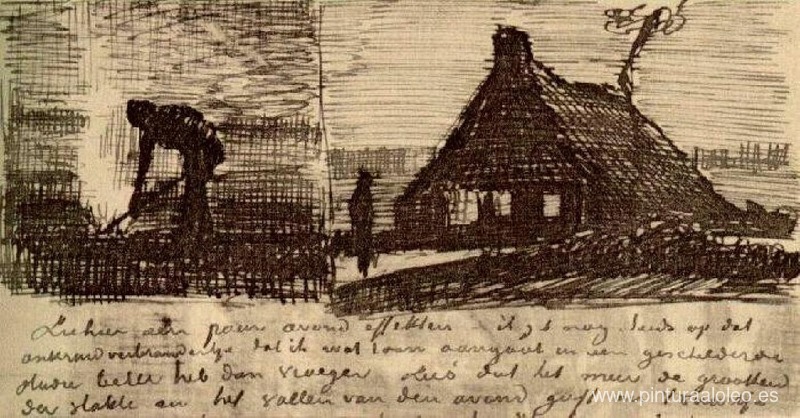 Ziehier een paar avond effekten ik nog steeds op dat
onkruidverbrandertje dat ik wat toon aangaat in een geschilderde
studie beter heb dan vroeger dat het meer de grootheid
der vlakte en het vallen van den avond
www.pinturaaloleo.es